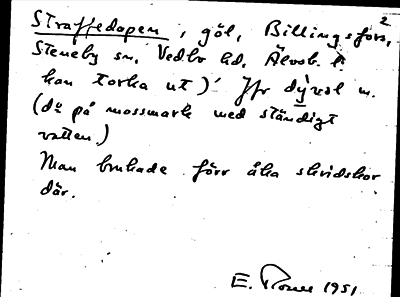 2
Straffedapen, göl, Billingsfors,
Steneby sn, Vedbo hd, Älvsb. l.
kan torka ut) Jfr dývəl m.
(dä på mossmark med ständigt
vatten.)
Man brukade förr åka skridskor
där.
E. 1951